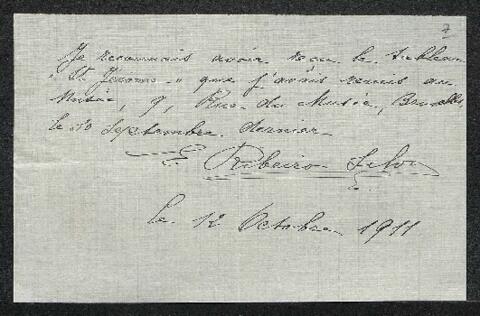 7
Je reconnais avoir reçu le tableau
"St. Jerome" que j'avais remis au
Musée, 9, Rue du Musée, Bruxelles
le 30 Septembre dernier.
E. Ribeiro Silva
le 12 Octobre 1911